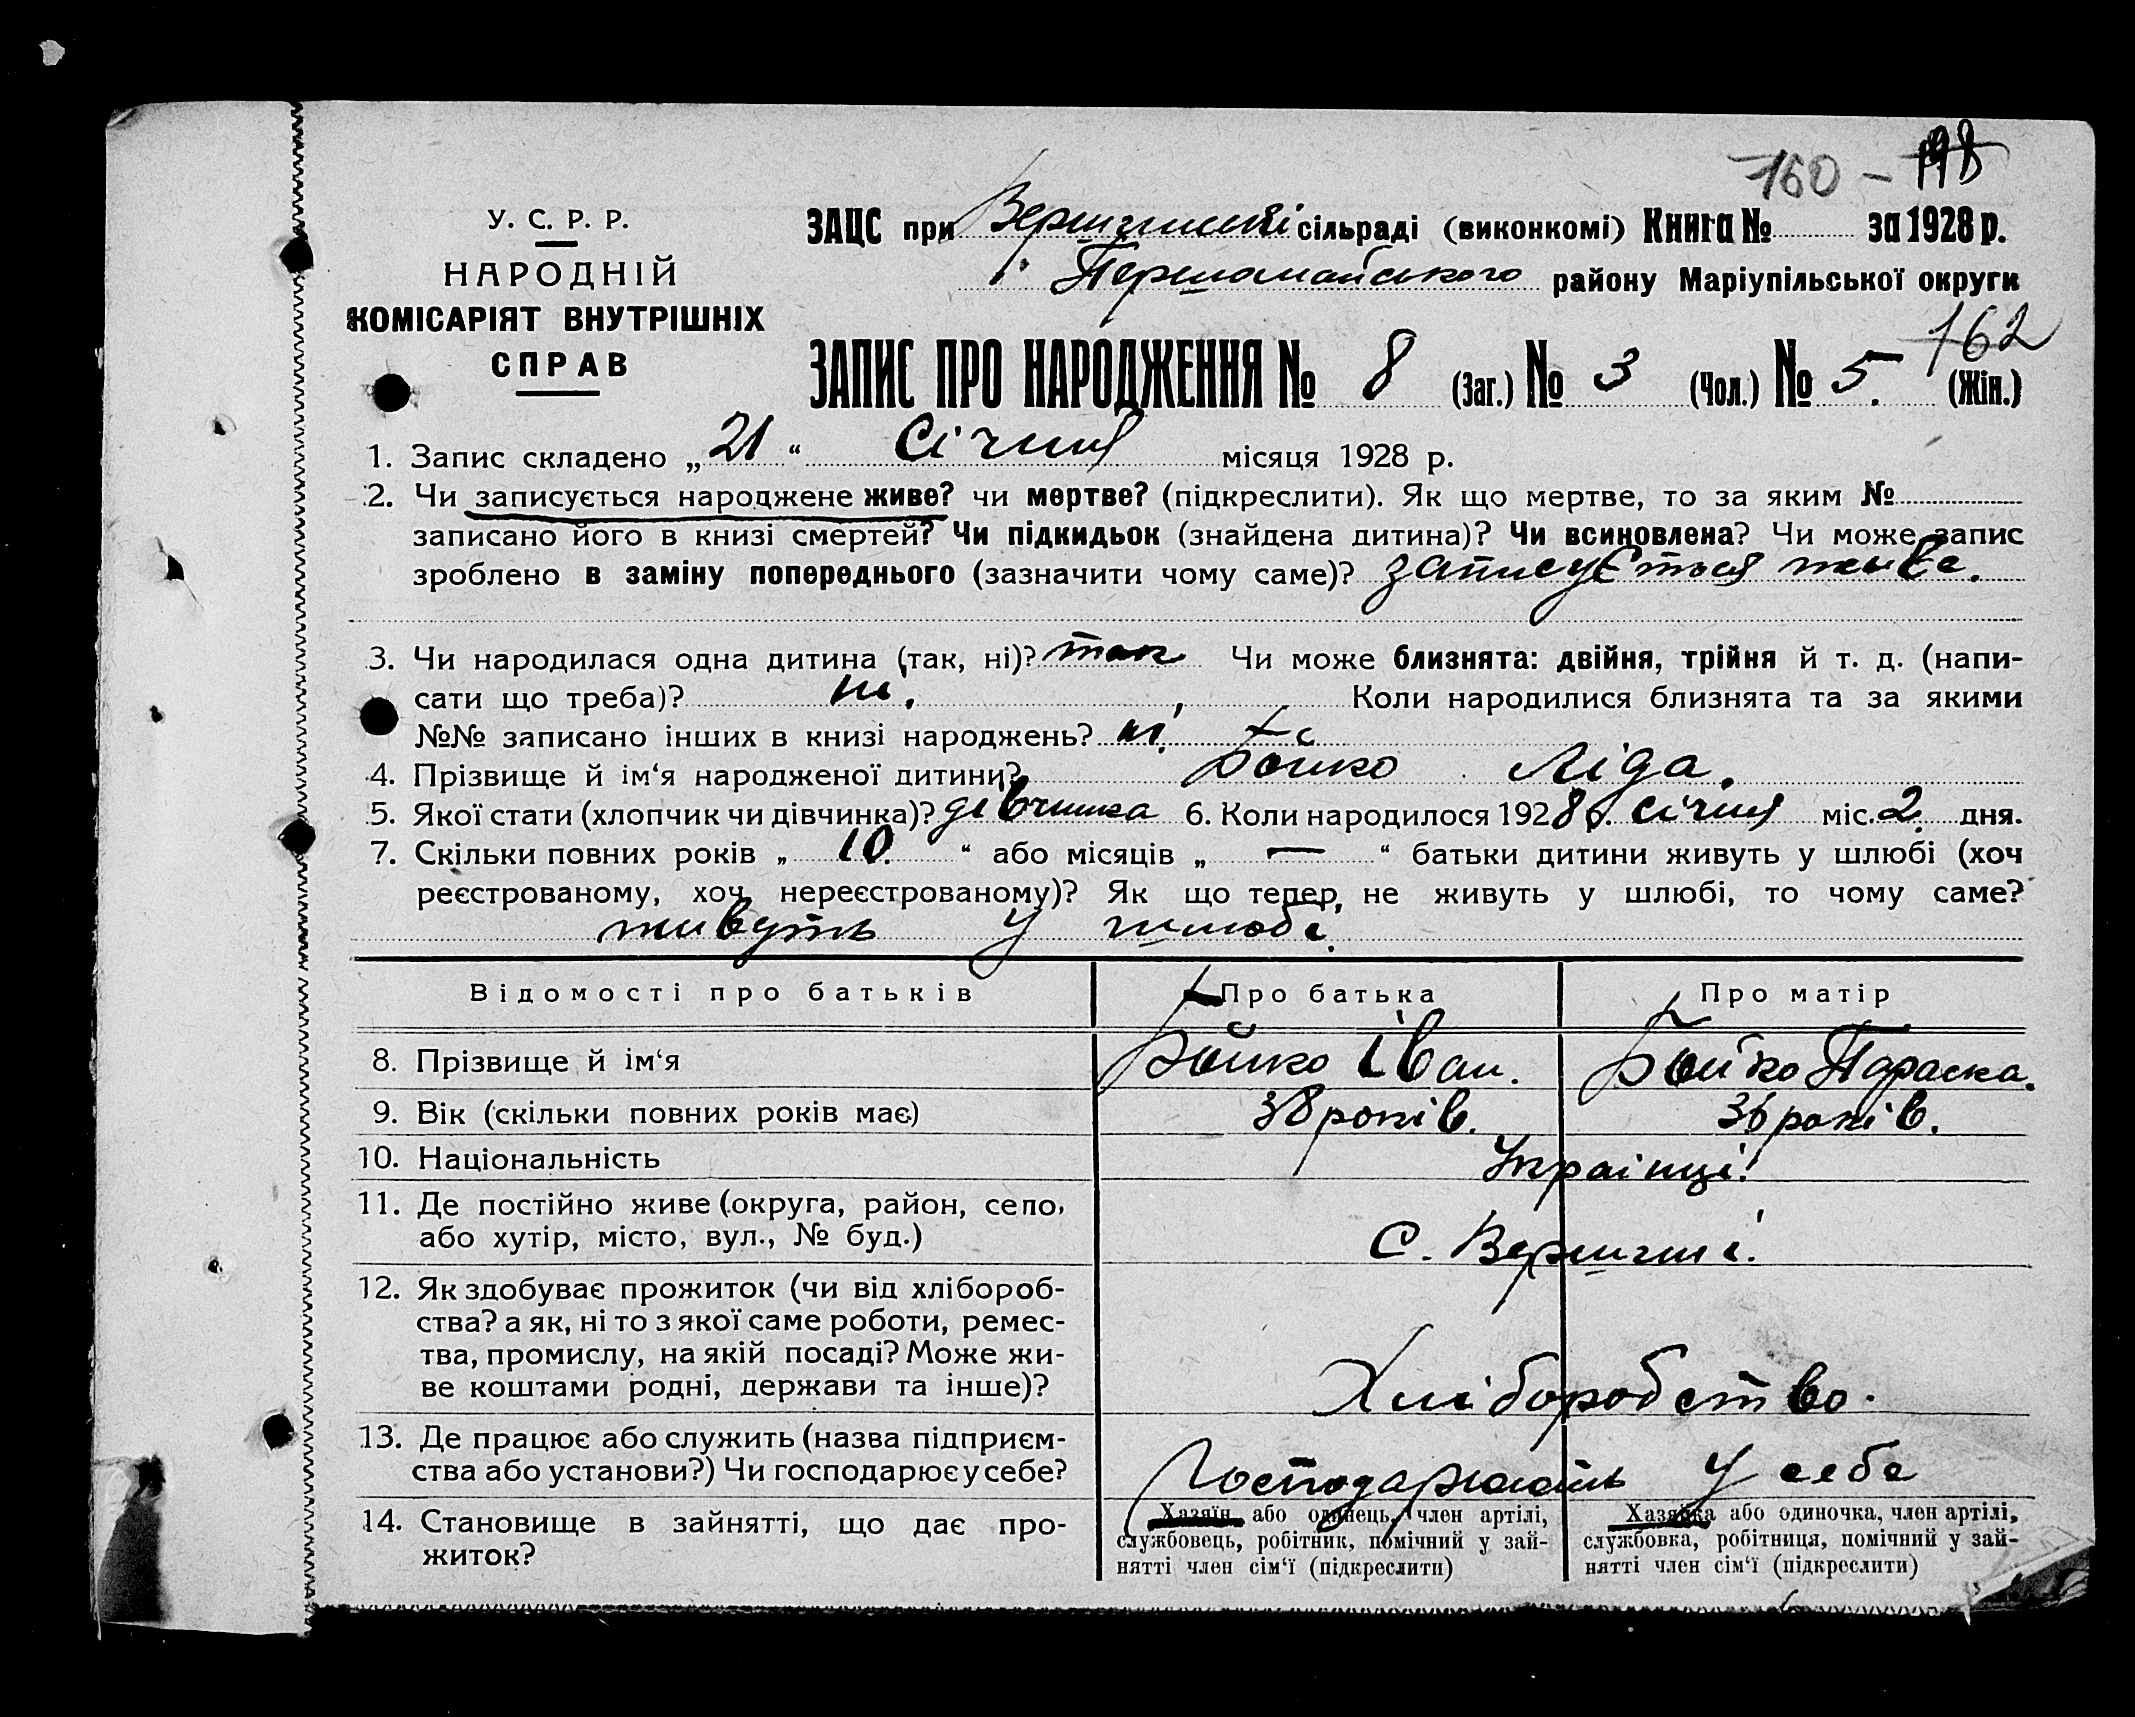 160 - 198
У. С. Р. Р.
НАРОДНІЙ
КОМІСАРІЯТ ВНУТРІШНІХ
СПРАВ
ЗАЦС при сільраді (виконкомі) Книга № за 1928 р.
Першомайського району Маріупільської округи
162
ЗАПИС ПРО НАРОДЖЕННЯ № 8 (Заг.) № 3 (Чол.) № 5. (Жін.)
1. Запис складено „21“ Січня місяця 1928 р.
2. Чи записується народжене живе? чи мертве? (підкреслити). Як що мертве, то за яким №
записано його в книзі смертей? Чи підкидьок (знайдена дитина)? Чи всиновлена? Чи може запис
зроблено в заміну попереднього (зазначити чому саме)? записується живе.
3. Чи народилася одна дитина (так, ні)? так Чи може близнята: двійня, трійня й т. д. (напи-
сати що треба)? ні. Коли народилися близнята та за якими
№№ записано інших в книзі народжень? ні.
4. Прізвище й ім‘я народженої дитини? Бойко Ліда.
5. Якої стати (хлопчик чи дівчинка)? дівчинка 6. Коли народилося 1928 р. січня міс. 2. дня.
7. Скільки повних років „ 10. “ або місяців „ — “ батьки дитини живуть у шлюбі (хоч
реєстрованому, хоч нереєстрованому)? Як що тепер не живуть у шлюбі, то чому саме?
живуть у шлюбі.
Відомості про батьків Про батька Про матір
8. Прізвище й ім‘я Бойко Іван. Бойко Параска.
9. Вік (скільки повних років має) 38 років. 36 років.
10. Національність Українці.
11. Де постійно живе (округа, район, село,
або хутір, місто, вул., № буд.) С. Вершині.
12. Як здобуває прожиток (чи від хлібороб-
ства? а як, ні то з якої саме роботи, ремес-
тва, промислу, на якій посаді? Може жи-
ве коштами родні, держави та інше)? Хліборобство.
13. Де працює або служить (назва підприєм-
ства або установи?) Чи господарює у себе? Господарюють у себе
14. Становище в зайнятті, що дає про-
житок?
Хазяїн або одинець, член артілі,
службовець, робітник, помічний у зай-
нятті член сім‘ї (підкреслити)
Хазяйка або одиночка, член артілі,
службовка, робітниця, помічний у зай-
нятті член сім‘ї (підкреслити)